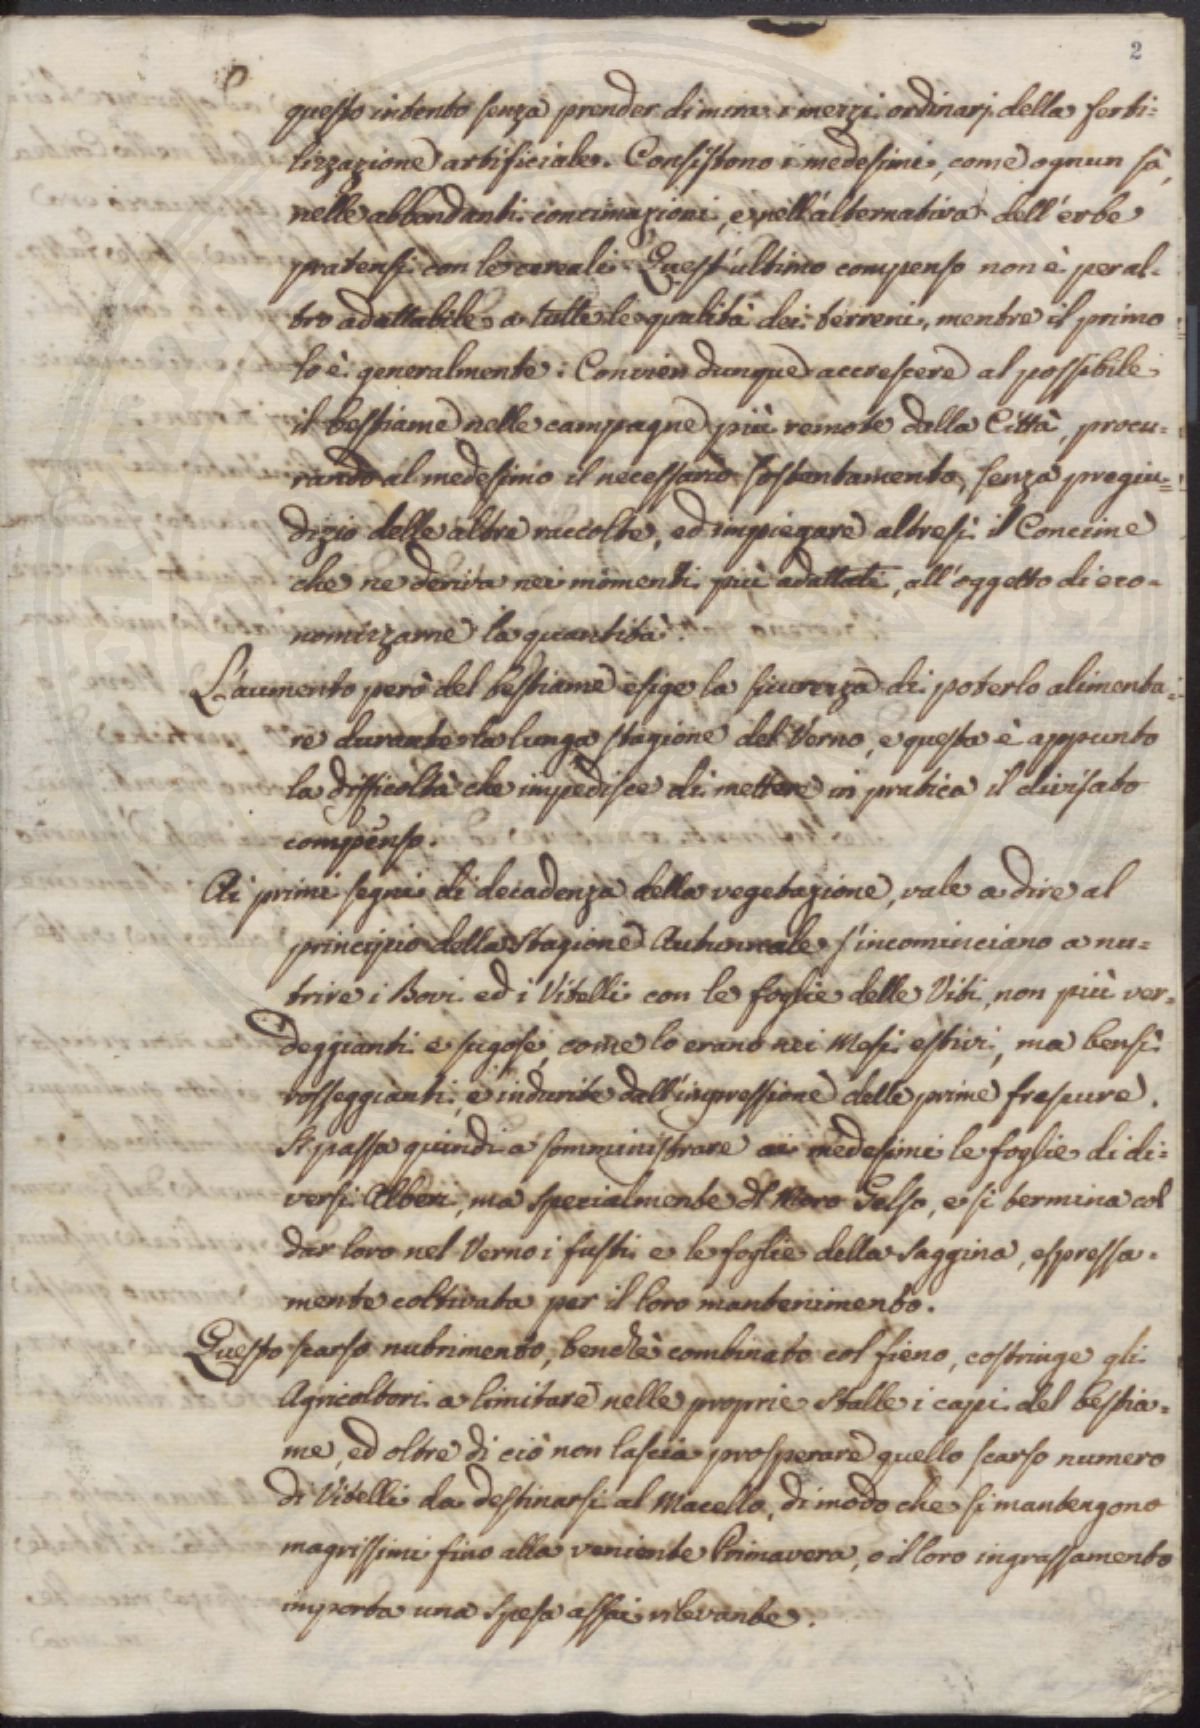 2
questo intento senza prender di mira i mezzi ordinarj della ferti=
lizzazione artificiale. Consistono i medesimi, come ognun sà,
nelle abbondanti concimazioni, e nell'alternativa dell'erbe
pratensi con le cereali. Quest'ultimo compenso non è peral=
tro adattabile a tutte le qualità dei terreni, mentre il primo
lo è generalmente: Convien dunque accrescere al possibile
il bestiame nelle campagne più remote dalla Città, procu=
rando al medesimo il necessario sostentamento, senza pregiu=
dizio delle altre raccolte, ed impiegare altresì il Concime
che ne deriva nei momenti più adattati, all'oggetto di eco=
nomizzarne la quantità.
L'aumento però del bestiame esige la sicurezza di poterlo alimenta=
re durante la lunga stagione del Verno, e questa è appunto
la difficoltà che impedisce di mettere in pratica il divisato
compenso.
Ai primi segni di decadenza della vegetazione, vale a dire al
principio della Stagione Autunnale s'incominciano a nu=
trire i Bovi ed i Vitelli con le foglie delle Viti, non più ver=
deggianti e sugose, come lo erano nei Mesi estivi, ma bensì
rosseggianti, e indurite dall'impressione delle prime frescure.
Si passa quindi a somministrare ai medesimi le foglie di di=
versi Alberi, ma specialmente di Moro Gelso, e si termina col
dar loro nel Verno i fusti e le foglie della Saggina, espressa=
mente coltivata per il loro mantenimento.
Questo scarso nutrimento, benchè combinato col fieno, costringe gli
Agricoltori a limitare nelle proprie Stalle i capi del bestia=
me, ed oltre di ciò non lascia prosperare quello scarso numero
di Vitelli da destinarsi al Macello, di modo che si mantengono
magrissimi fino alla veniente Primavera, o il loro ingrassamento
importa una spesa assai rilevante.